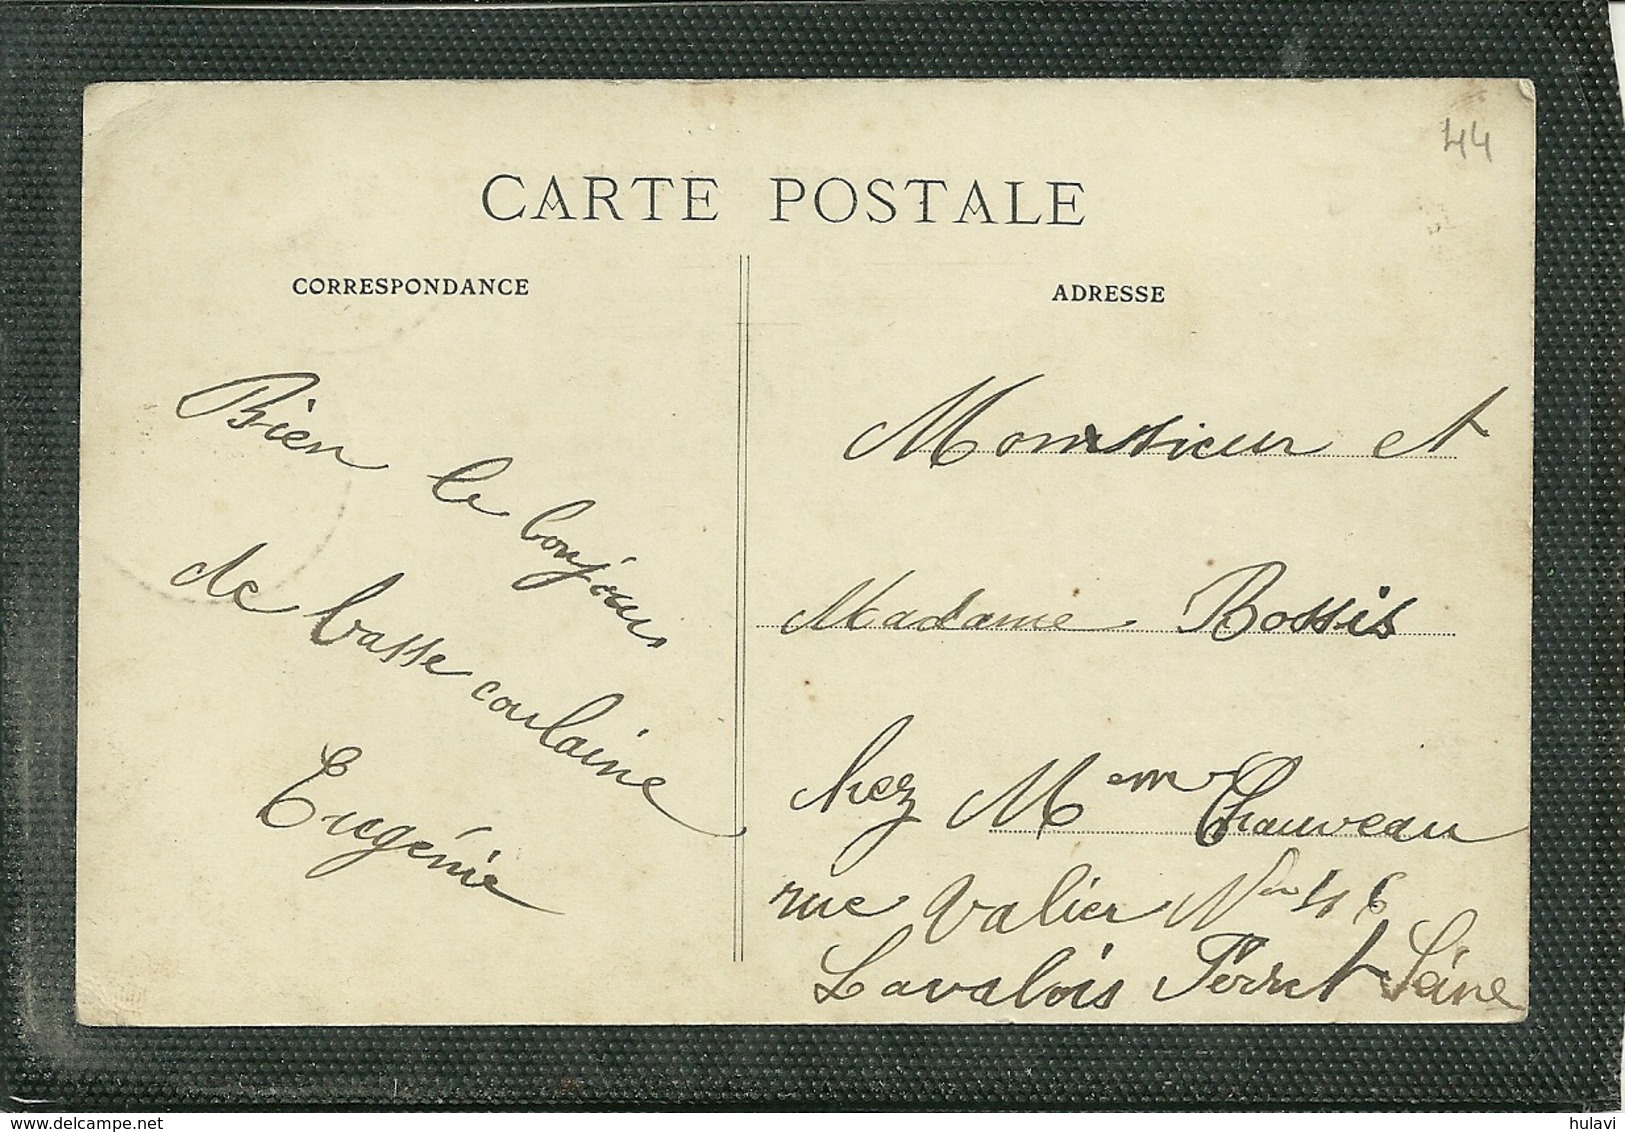 44
CARTE POSTALE
CORRESPONDANCE
Bien le bonjour
de basse coulaine
Eugénie
ADRESSE
Monsieur et
Madame Bossis
chez Mem Chauveau
rue Valier No 46
Lavalois Perret Seine
delcampe.net
hulavi